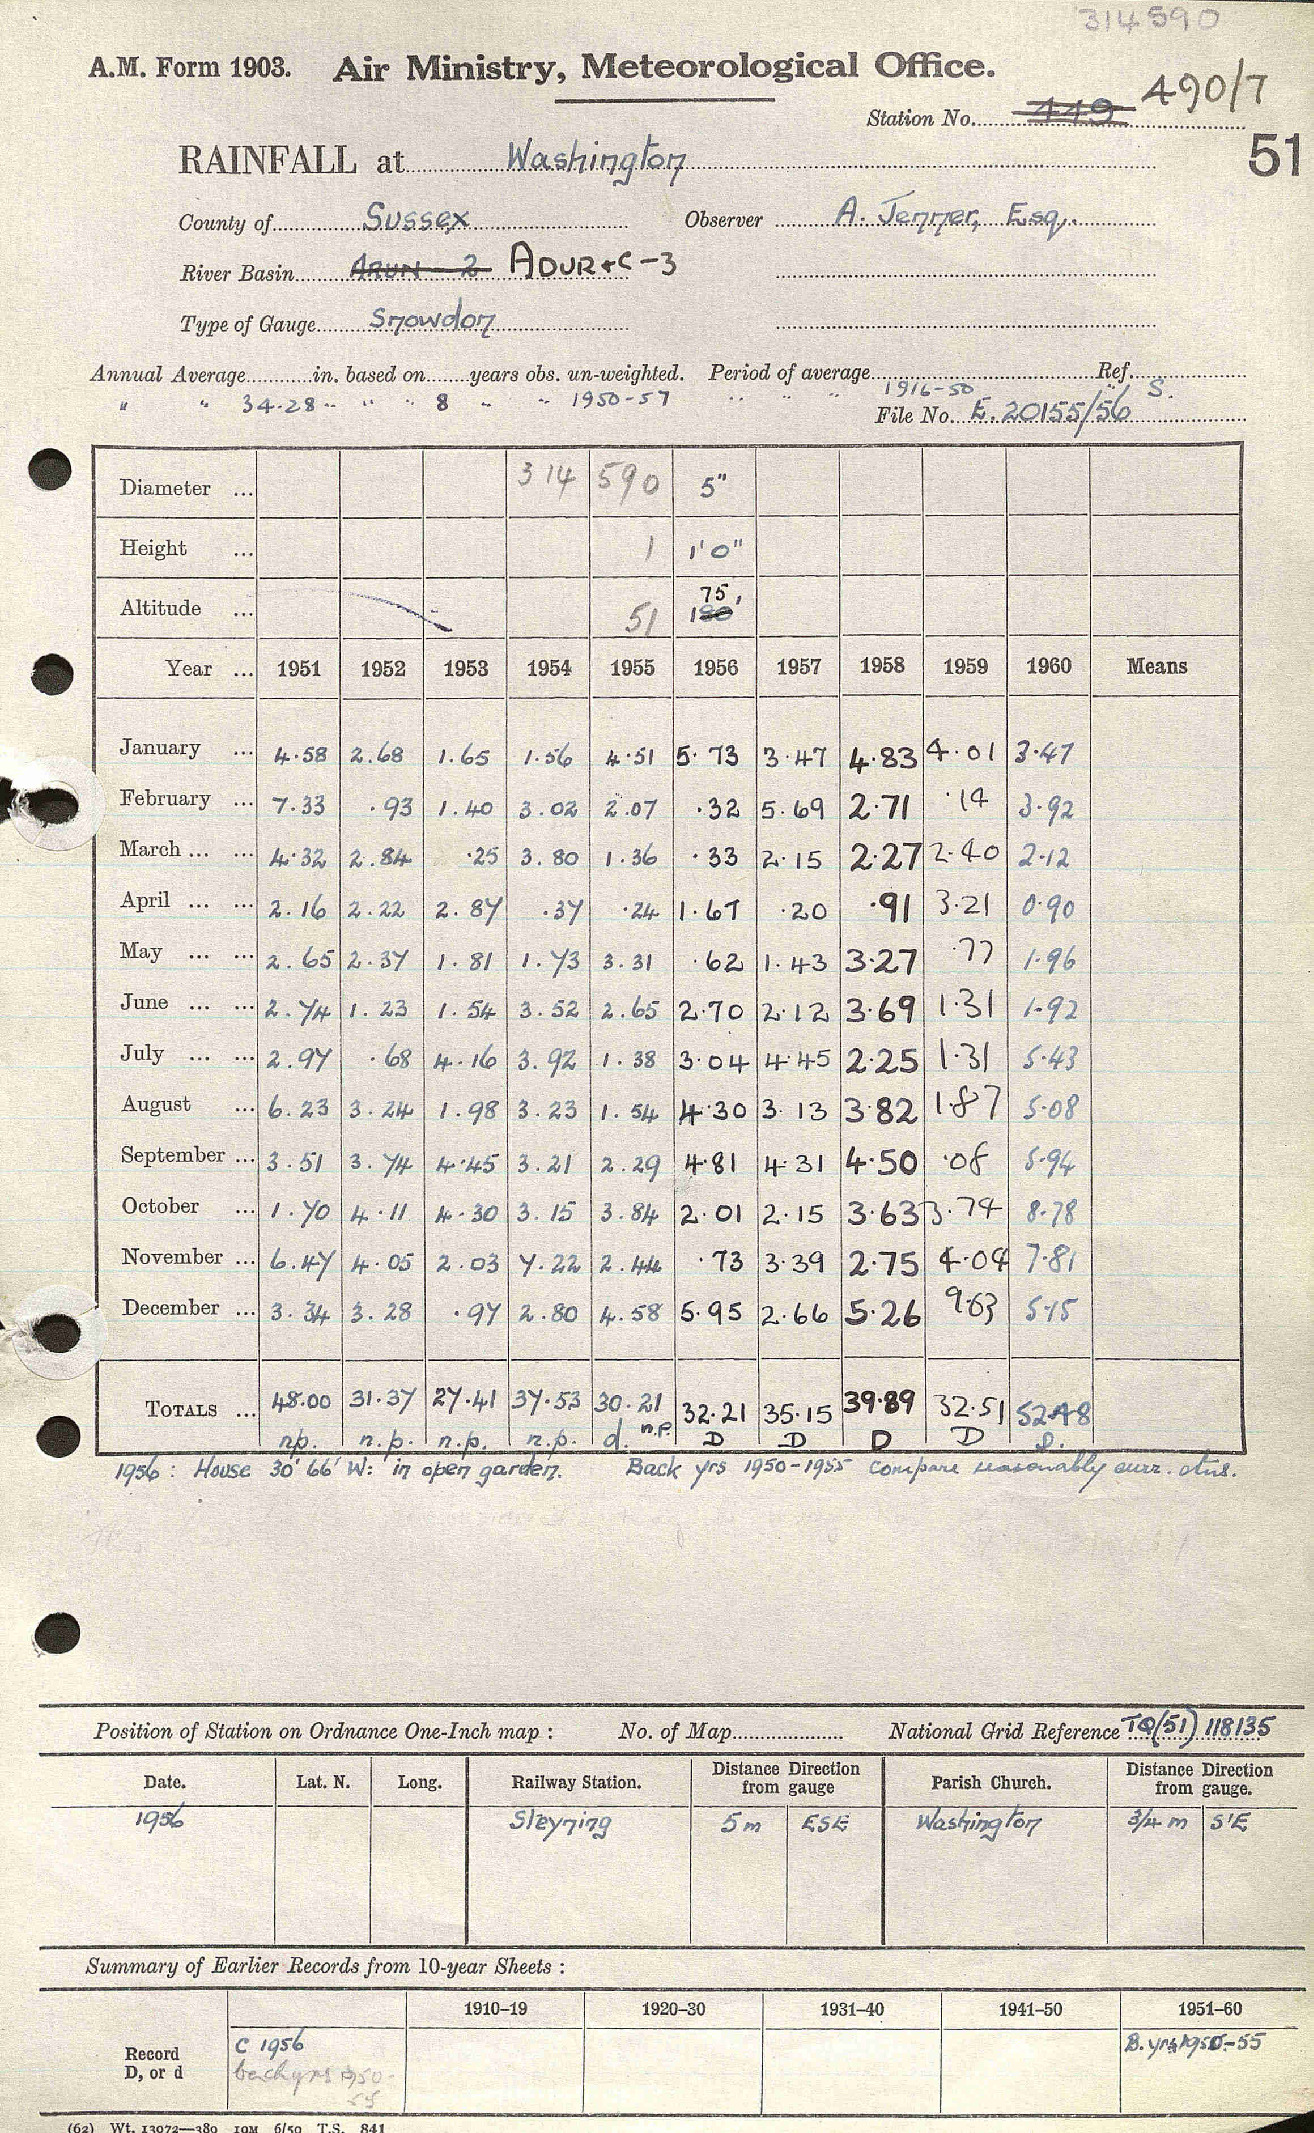 314590
A.M. Form 1903. Air Ministry, Meteorological Office.
Station No. 449 490/7
51
RAINFALL at Washington
County of Sussex Observer A. Jenner, Esq.
River Basin ARUN - 2 ADUR+C-3
Type of Gauge Snowdon
Annual Average in. based on years obs. un-weighted. Period of average Ref.
" " 34.28 " " " 8 " " 1950-57 " " " 1916-50 S.
File No. E. 20155/56
Diameter ... 314 590 5"
Height ... 1 1'0"
Altitude ... 51 75'
Year ... 1951 1952 1953 1954 1955 1956 1957 1958 1959 1960 Means
January ... 4.58 2.68 1.65 1.56 4.51 5.73 3.47 4.83 4.01 3.47
February ... 7.33 .93 1.40 3.02 2.07 .32 5.69 2.71 .14 3.92
March ... ... 4.32 2.84 .25 3.80 1.36 .33 2.15 2.27 2.40 2.12
April ... ... 2.16 2.22 2.87 .37 .24 1.67 .20 .91 3.21 0.90
May ... ... 2.65 2.37 1.81 1.73 3.31 .62 1.43 3.27 .77 1.96
June ... ... 2.74 1.23 1.54 3.52 2.65 2.70 2.12 3.69 1.31 1.92
July ... ... 2.97 .68 4.16 3.92 1.38 3.04 4.45 2.25 1.31 5.43
August ... 6.23 3.24 1.98 3.23 1.54 4.30 3.13 3.82 1.87 5.08
September ... 3.51 3.74 4.45 3.21 2.29 4.81 4.31 4.50 .08 5.94
October ... 1.70 4.11 4.30 3.15 3.84 2.01 2.15 3.63 3.74 8.78
November ... 6.47 4.05 2.03 7.22 2.44 .73 3.39 2.75 4.04 7.81
December ... 3.34 3.28 .97 2.80 4.58 5.95 2.66 5.26 9.63 5.15
TOTALS ... 48.00 31.37 27.41 37.53 30.21 32.21 35.15 39.89 32.51 52.48
n.p. n.p. n.p. n.p. d. n.p. D D D D D.
1956 : House 30' 66' W: in open garden. Back yrs 1950-1955 compare reasonably surr. stns.
Position of Station on Ordnance One-Inch map : No. of Map National Grid Reference TQ(51) 118135
Date. Lat. N. Long. Railway Station. Distance Direction from gauge Parish Church. Distance Direction from gauge.
1956 Steyning 5 m ESE Washington 3/4 m S'E
Summary of Earlier Records from 10-year Sheets :
1910-19 1920-30 1931-40 1941-50 1951-60
Record D, or d C 1956 B. yrs 1950-55
back yrs 1950-55
(62) Wt. 13072—380 10M 6/50 T.S. 841